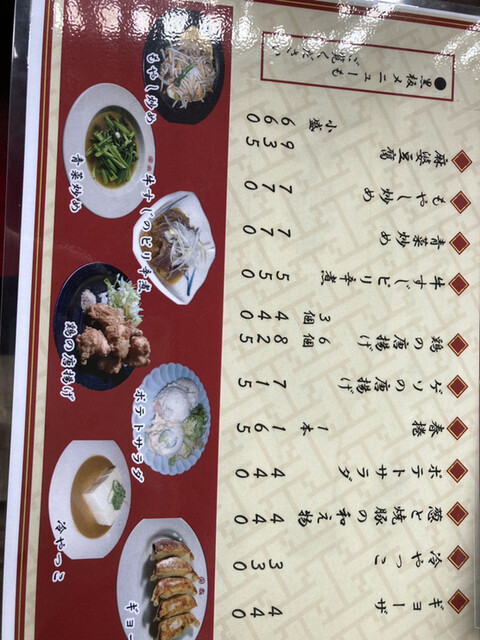 ギョーザ 440
冷やっこ 330
葱と焼豚の和え物 440
ポテトサラダ 440
春捲 1本 165
ゲソの唐揚げ 715
鶏の唐揚げ 6個 825
3個 440
牛すじピリ辛煮 550
青菜炒め 770
もやし炒め 770
麻婆豆腐 935
小盛 660
●黒板メニューも
ご覧ください
ギョー
冷やっこ
ポテトサラダ
鶏の唐揚げ
牛すじのピリ辛煮
青菜炒め
もやし炒め